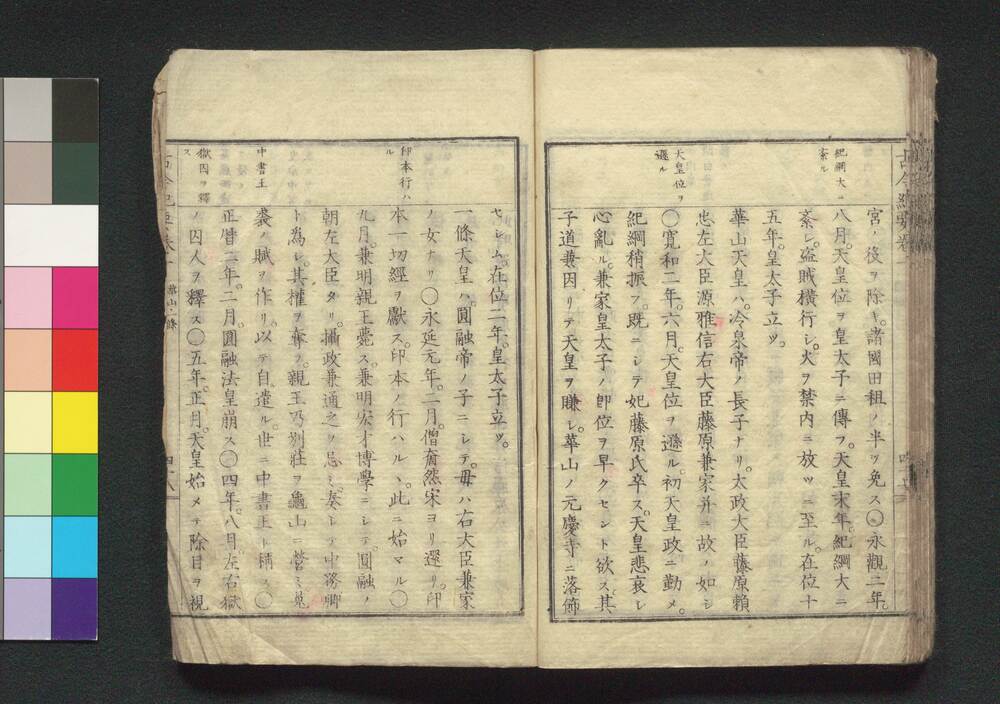 古今紀要卷一
紀綱大ニ
紊ル
天皇位ヲ
遜ル
宮ノ役ヲ除キ。諸國田租ノ半ヲ免ス〇永觀二年。
八月。天皇位ヲ皇太子ニ傳フ。天皇末年。紀綱大ニ
紊レ。盗賊橫行シ。火ヲ禁内ニ放ツニ至ル。在位十
五年。皇太子立ツ。
華山天皇ハ。冷泉帝ノ長子ナリ。太政大臣藤原賴
忠左大臣源雅信右大臣藤原兼家幷ニ故ノ如シ
〇寬和二年。六月。天皇位ヲ遜ル。初天皇政ニ勤メ。
紀綱稍振フ。既ニシテ妃藤原氏卒ス。天皇悲哀シ
心亂ル。兼家皇太子ノ卽位ヲ早クセント欲ス。其
子道兼因リテ天皇ヲ賺シ。華山ノ元慶寺ニ落飾
印本行ハ
ル
中書王
獄囚ヲ釋
ス
セシム。在位二年。皇太子立ツ。
一條天皇ハ。圓融帝ノ子ニシテ。母ハ右大臣兼家
ノ女ナリ〇永延元年。二月。僧奝然宋ヨリ還リ。印
本一切經ヲ獻ス。印本ノ行ハルヽ。此ニ始マル〇
九月。兼明親王薨ス。兼明宏才博學ニシテ圓融ノ
朝左大臣タリ。攝政兼通之ヲ忌ミ。奏シテ中務卿
ト為シ。其權ヲ奪フ。親王乃別莊ヲ龜山ニ營ミ。菟
裘ノ賦ヲ作リ。以テ自遣ル。世ニ中書王ト稱ス〇
正曆二年。二月。圓融法皇崩ス〇四年。八月。左右獄
ノ囚人ヲ釋ス〇五年。正月。天皇始メテ除目ヲ視
華山・一條
四十八